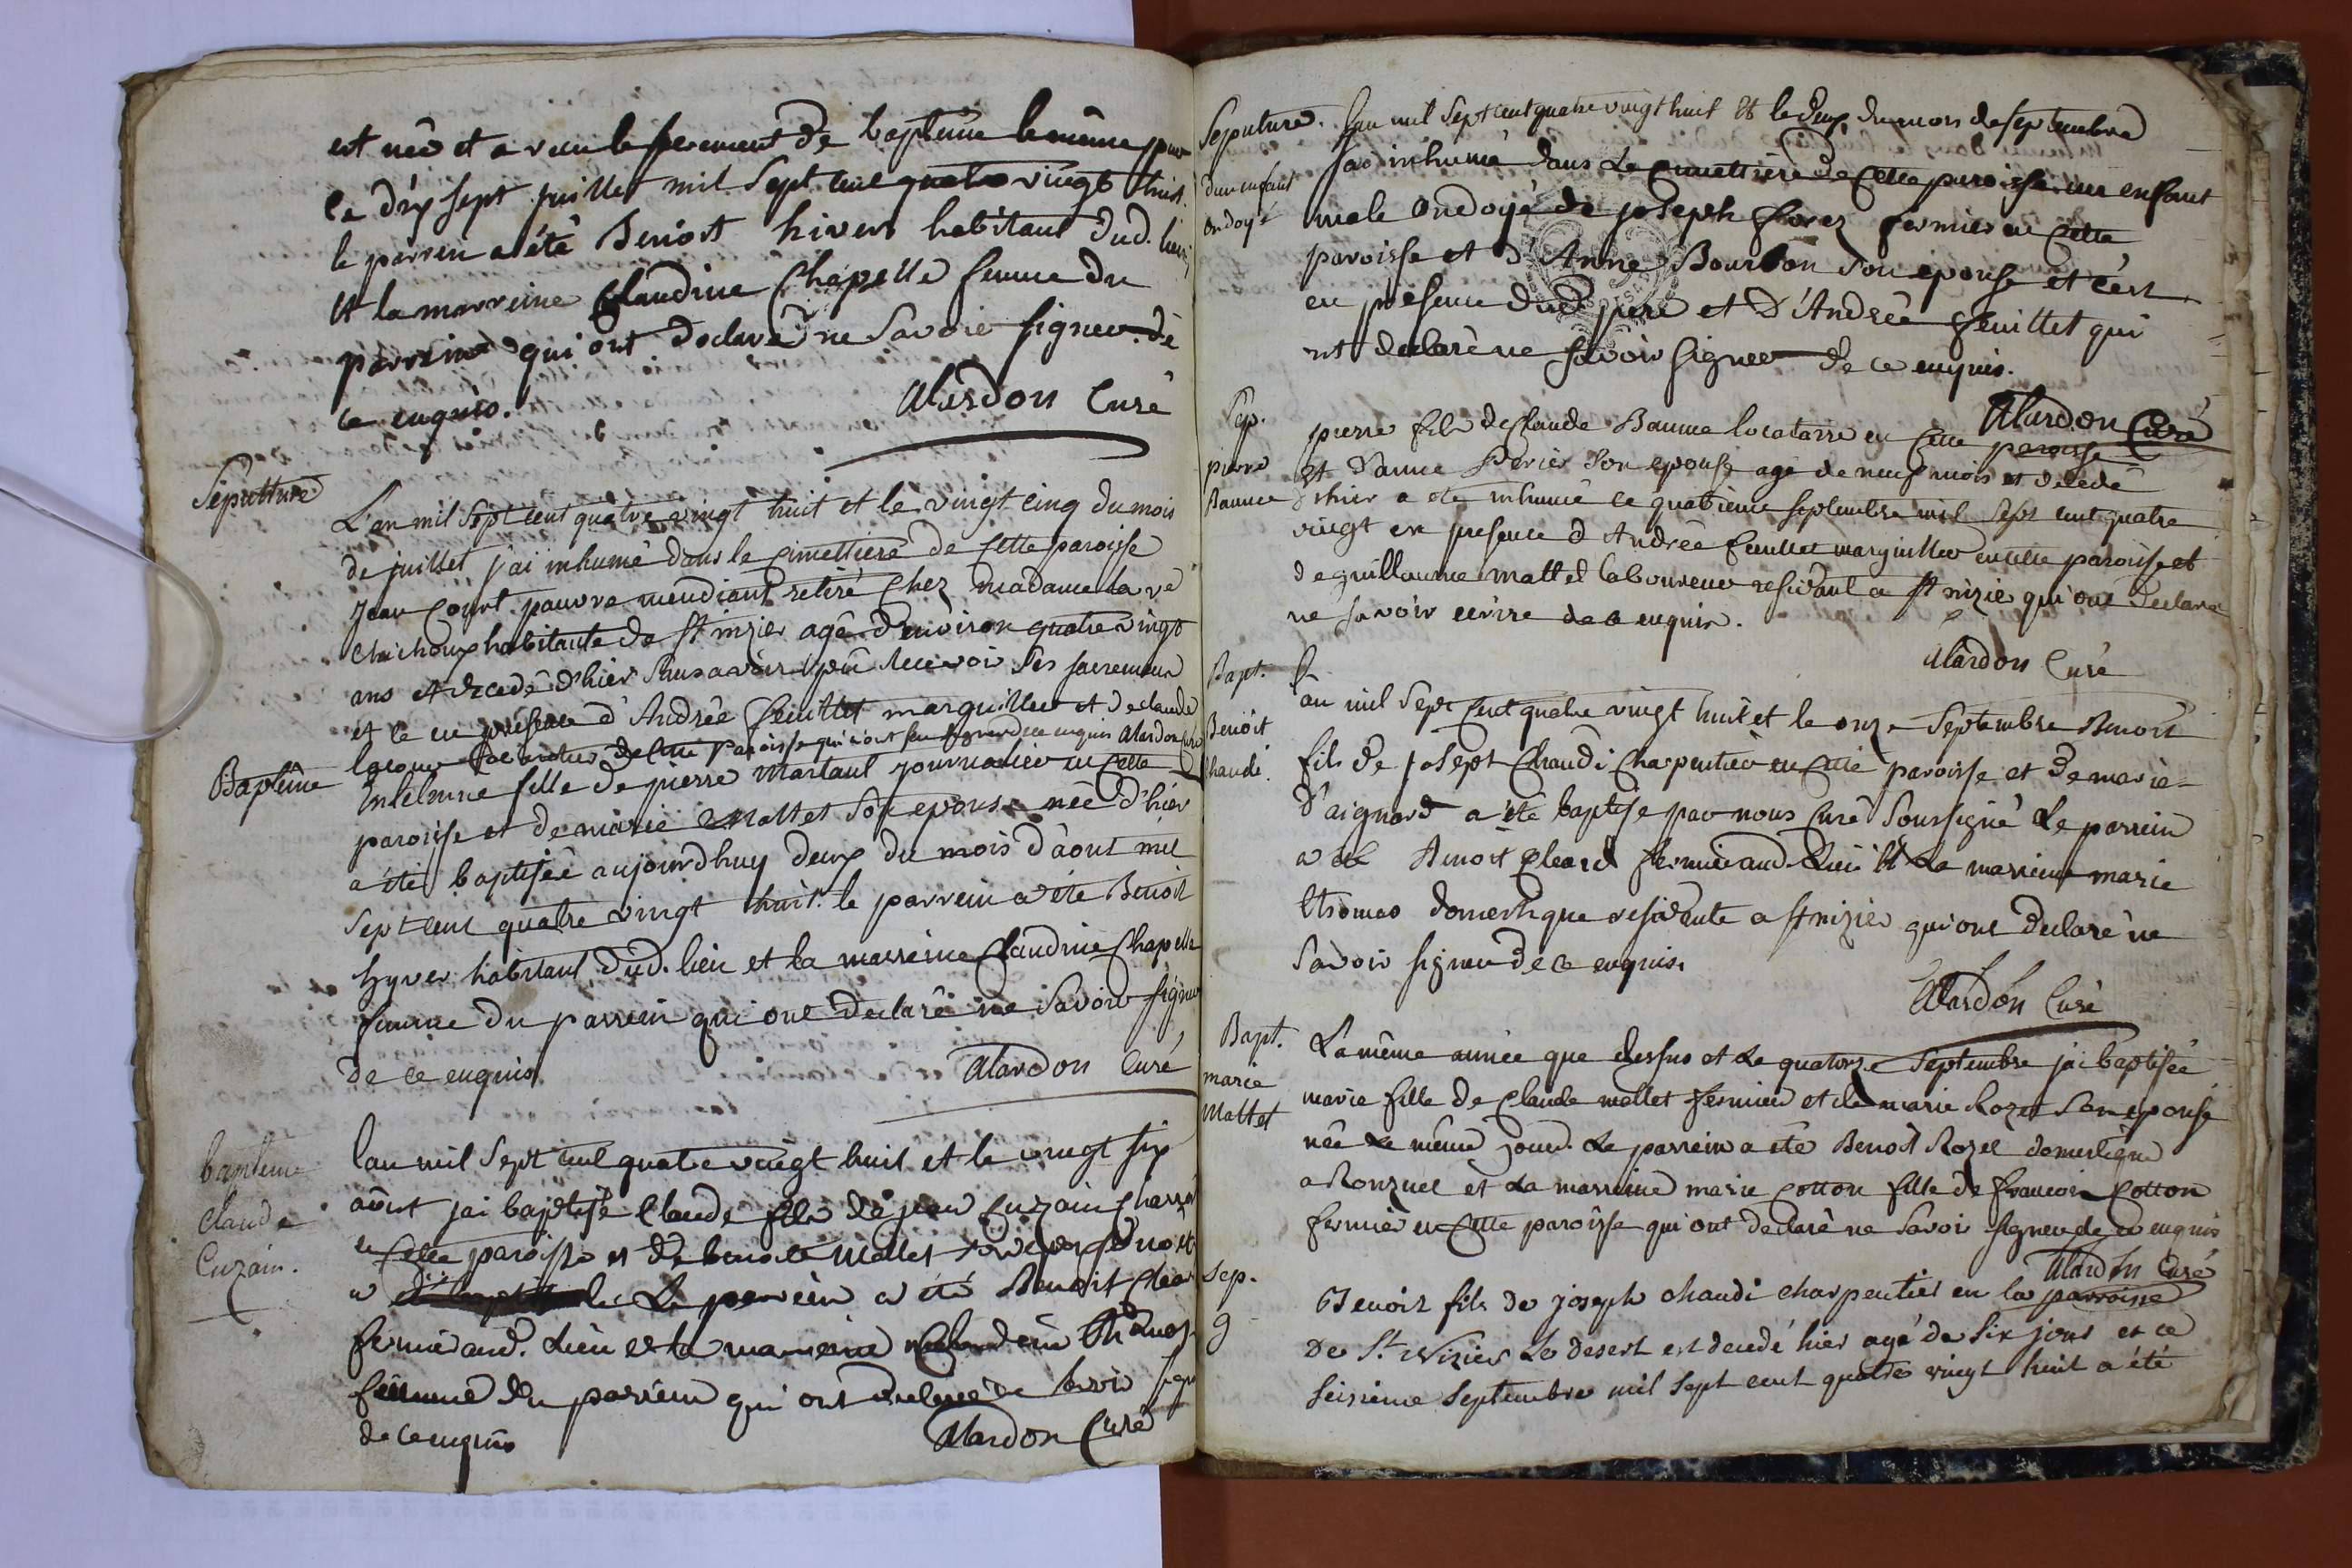 est né et a recu le sacrement de baptême le même jour
le dix sept juillet mil sept cent quatre vingt huit.
le parrein a été Benoit hiver habitant dud. lieu
et la marreine Claudine Chapelle femme du
parrein qui ont declaré ne savoir signer. de
ce enquis.
Alardon Curé
Sépulture
L'an mil sept cent quatre vingt huit et le vingt cinq du mois
de juillet j'ai inhumé dans le cimettiere de cette paroisse
Jean Court pauvre mendiant retiré chez madame la ve
habitante de st nizier agé d'environ quatre vingt
ans et decedé d'hier sans avoir pû recevoir ses sacremens
et ce en présence d'Andrée feuillet marguillier et de claude
de cette paroisse qui n'ont su signer de ce enquis Alardon curé
Baptême
fille de pierre Martaut journalier en cette
paroisse et de marie Mattet son epouse née d'hier
a été baptisée aujourdhuy deux du mois d'aout mil
sept cent quatre vingt huit. le parrein a été Benoit
hyver habitant dud. lieu et la marreine Claudine Chapelle
femme du parrein qui ont declaré ne savoir signer
de ce enquis
Alardon Curé
bapteme
claude
Cuzain.
lan mil sept cent quatre vingt huit et le vingt six
août jai baptisé Claude fils de jean Cuzain
en cette paroisse et de benoite Mallet son epouse né et
Le parrein a été Benoit Clear
fermier aud. Lieu et la marreine
femme du parrein qui ont declaré ne savoir signer
de ce enquis
Alardon Curé
Sepulture.
d'un enfant
ondoyé
l'an mil sept cent quatre vingt huit et le deux du mois de septembre
j'ai inhumé dans le cimettiere de cette paroisse un enfant
male ondoyé de joseph forez fermier en cette
paroisse et d'Anne Bourbon son epouse et c'est
en présence dud pere et d'Andrée feuillet qui
nt declaré ne savoir signer de ce enquis.
Alardon Curé
Sep.
pierre
Baume
pierre fils de Claude Baume locatarre en cette paroisse
et d'anne Perier son epouse agé de neuf mois et decedé
d'hier a eté inhumé ce quatrieme septembre mil sept cent quatre
vingt en presence d'Andrée feuillet marguillier en cette paroisse et
de guillaume mattet laboureur residant a st nizier qui ont declaré
ne savoir ecrire de ce enquis.
Alardon Curé
Bapt.
Benoit
Chaudi.
L'an mil sept cent quatre vingt huit et le onze septembre Benoit
fils de josept Chaudi Charpentier en cette paroisse et de marie
d'aignard a été baptisé par nous Curé soussigné Le parrein
a été Benoit Cleard fermier aud. Lieu et La marreine marie
thomas domestique residente a st nizier qui ont declaré ne
savoir signer de ce enquis.
Alardon Curé
Bapt.
marie
Mattet
La même année que dessus et le quatorze septembre jai baptisée
marie fille de Claude mattet fermier et de marie Rozet son epouse
née le même jour. Le parrein a été Benoit Rozet domestique
a Ronzuel et La marreine marie Cotton fille de francois Cotton
fermier en cette paroisse qui ont declaré ne savoir signer de ce enquis
Alardon Curé
Sep.
9
Benoit fils de joseph chaudi charpentier en la parroisse
De St. Nizier Le desert est decedé hier agé de six jours et ce
seisieme septembre mil sept cent quatre vingt huit a été